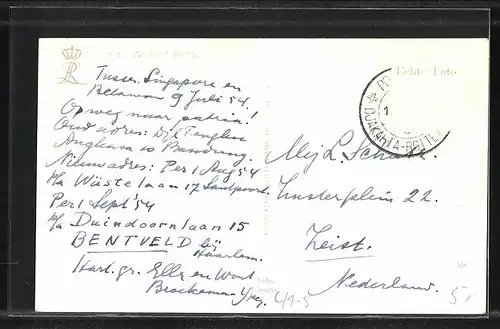 Tussen Singapore en
Bellawan 9 Juli '54!
Op weg naar patria!
Oud adres: Djl. Tengku
Angkasa 10 Bandung.
Nieuw adres: Per 1 Aug 54
p/a Wüstelaan 17 Santpoort.
Per 1 Sept '54
p/a Duindoornlaan 15
BENTVELD bij
Haarlem.
Hart. gr. Elly en Wout
Echte Foto
DJAKARTA
Mej. L.
22.
Zeist.
Nederland.
4/1-5
5,-